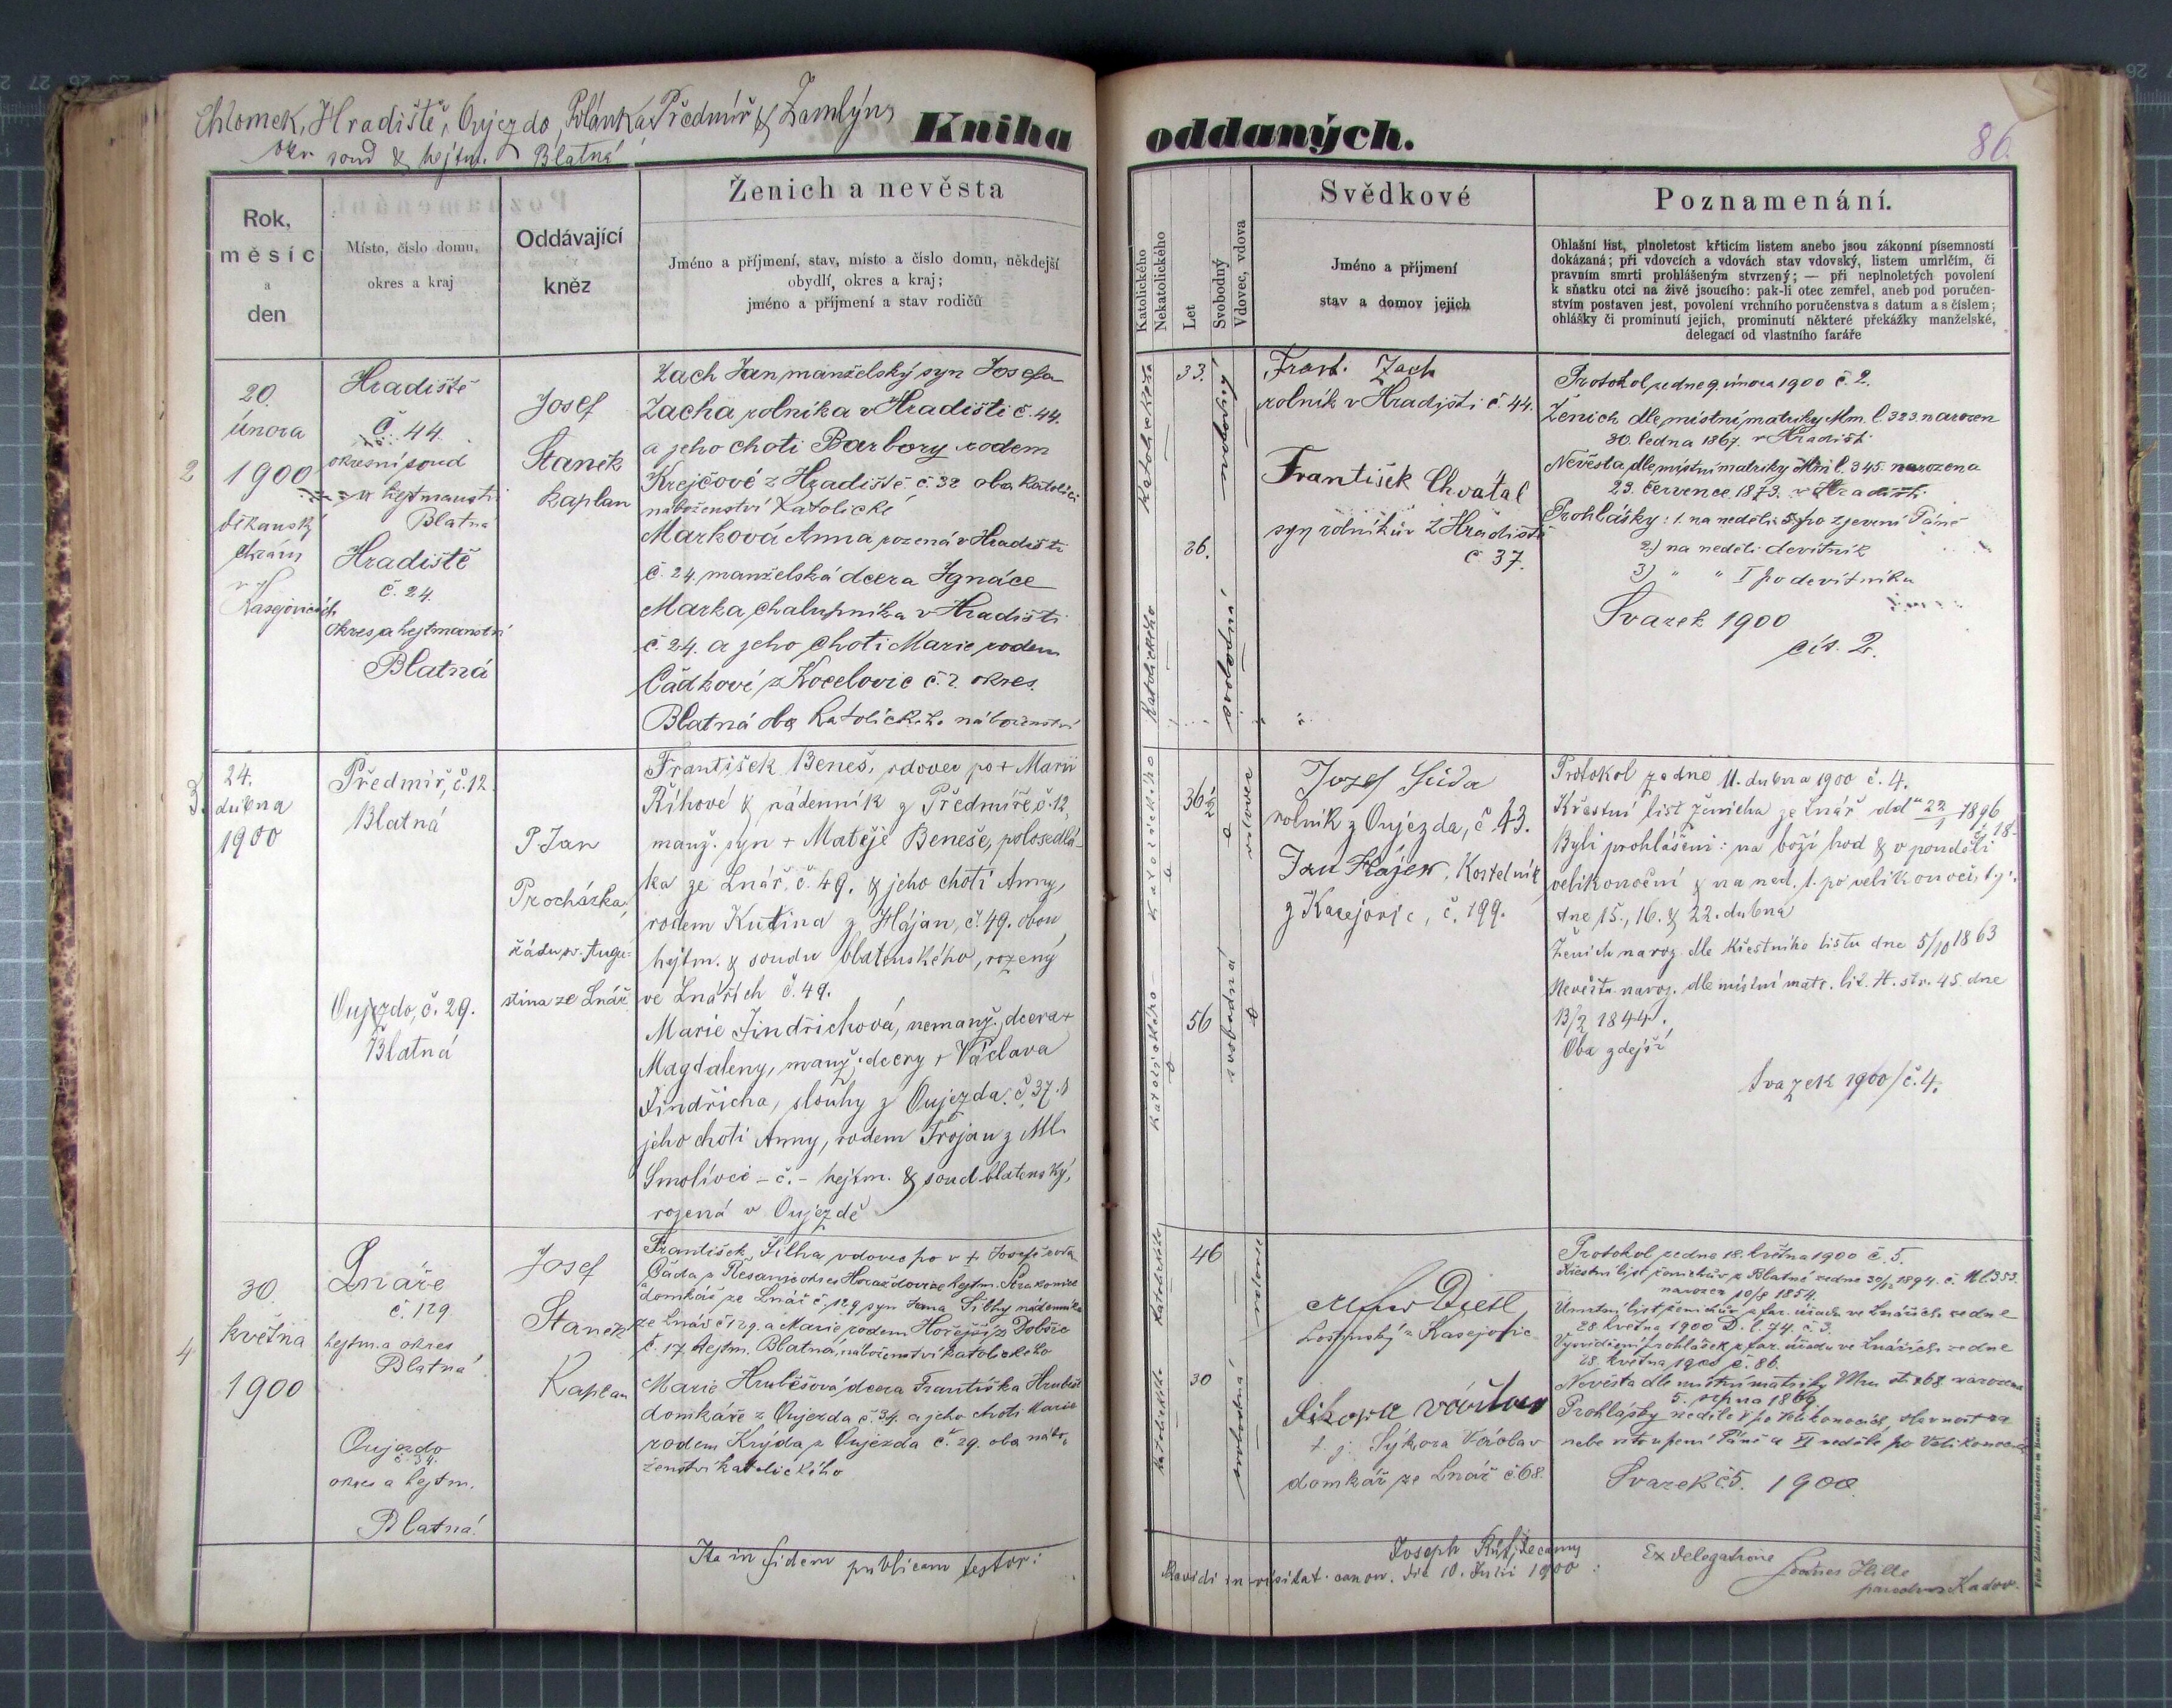 Chlomek, Hradiště, Oujezdo, Polánka, Předmíř & Zamlýny
okr. soud & hejtm. Blatná
Kniha oddaných.
86.
Rok,
měsíc
a
den
Místo, číslo domu,
okres a kraj
Oddávající
kněz
Ženich a nevěsta
Jméno a příjmení, stav, místo a číslo domu, někdejší
obydlí, okres a kraj;
jméno a příjmení a stav rodičů
Katolického
Nekatolického
Let
Svobodný
Vdovec, vdova
Svědkové
Jméno a příjmení
stav a domov jejich
Poznamenání.
Ohlašní líst, plnoletost křticím listem anebo jsou zákonní písemností
dokázaná; při vdovcích a vdovách stav vdovský, listem umrlčím, či
pravním smrti prohlášeným stvrzený; — při neplnoletých povolení
k sňatku otci na živě jsoucího: pak-li otec zemřel, aneb pod poručen-
stvím postaven jest, povolení vrchního poručenstva s datum a s číslem;
ohlášky či prominutí jejich, prominutí některé překážky manželské,
delegací od vlastního faráře
2
20.
února
1900
děkanský
chrám
v
Kasejovicích
Hradiště
č. 44.
okresní soud
a hejtmanství
Blatná
Hradiště
č. 24.
okres a hejtmanství
Blatná
Josef
Staněk
kaplan
Zach Jan manželský syn Josefa
Zacha rolníka v Hradišti č. 44.
a jeho choti Barbory rodem
Krejčové z Hradiště č. 32 oba katolíci
náboženství katolické
Marková Anna rozená v Hradišti
č. 24. manželská dcera Ignáce
Marka, chalupníka v Hradišti
č. 24. a jeho choti Marie rodem
Čadkové z Kocelovic č. 2. okres.
Blatná oba katolického náboženství
katolického
33.
svobodný
katolického
26.
svobodná
Frant. Zach
rolník v Hradišti č. 44.
František Chvátal
syn rolníkův z Hradiště
č 37.
Protokol ze dne 9. února 1900 č. 2.
Ženich dle místní matriky Mm. l. 323 narozen
30. ledna 1867. v Hradišti
Nevěsta dle místní matriky Mm l. 345. narozena
23. července 1873. v Hradišti
Prohlášky: 1. na neděli 5. po zjevení Páně
2) na neděli devítník
3) " " I po devítníku
Svazek 1900
čís. 2.
3.
24.
dubna
1900
Předmíř, č. 12.
Blatná
Oujezdo, č. 29.
Blatná
P Jan
Procházka,
řádu sv. Augu-
stina ze Lnář
František Beneš, vdovec po + Marii
Říhové & nádenník z Předmíře č. 12,
manž. syn + Matěje Beneše, polosedlá-
ka ze Lnář, č. 49. & jeho choti Anny,
rodem Kutina z Hájan, č. 49. obou
hejtm. & soudu blatenského, rozený
ve Lnářích č. 49.
Marie Jindřichová, nemanž. dcera +
Magdaleny, manž. dcery + Václava
Jindřicha, slouhy z Oujezda č. 37. &
jeho choti Anny, rodem Trojan z Ml.
Smolivce – č. – hejtm. & soud blatenský,
rozená v Oujezdě
katolického
36
vdovec
katolického
56
svobodná
Jozef Süda
rolník z Oujezda, č. 43.
Jan Hájek, kostelník
z Kasejovic, č. 199.
Protokol ze dne 11. dubna 1900 č. 4.
Křestní list ženicha ze Lnář ddto 22/1 1896
č. 18.
Byli prohlášeni: na boží hod & v pondělí
velikonoční & na ned. 1. po velikonoci, t. j.
dne 15., 16. & 22. dubna
Ženich naroz. dle křestního listu dne 5/10 1863
Nevěsta naroz. dle místní matr. lit. H. str. 45. dne
13/2 1844.
Oba zdejší
Svazek 1900/č. 4.
4
30.
května
1900
Lnáře
č. 129
hejtm. a okres
Blatná
Oujezdo
č. 34.
okres a hejtm.
Blatná.
Josef
Staněk
Kaplan
František Silha vdovec po + Josefě roz.
Čáda z Řesanic okres Horažďovice hejtm. Strakonice
domkář ze Lnář č. 129 syn Jana Silhy nádenníka
ze Lnář č 129. a Marie rodem Hořejší z Dobšic
č. 17. hejtm. Blatná, náboženství katolického
Marie Hrubešová dcera Františka Hrubeše
domkáře z Oujezda č. 34. a jeho choti Marie
rodem Krýda z Oujezda č. 29. oba nábo-
ženství katolického
katolického
46
vdovec
katolického
30
svobodná
Dietl
z Kasejovic
Sikora
t. j. Sýkora Václav
domkář ze Lnář č 68.
Protokol ze dne 18. května 1900 č. 5.
Křestní list ženichův z Blatné ze dne 30/12 1894. č. 11 l. 353.
narozen 10/8 1854.
Úmrtní list ženichův z far. úřadu ve Lnářích ze dne
28. května 1900 D. l. 74. č. 3.
Vysvědčení prohlášek z far. úřadu ve Lnářích ze dne
28. května 1900 č. 86.
Nevěsta dle místní matriky Mm st. 268 narozena
5. srpna 1869.
Prohlášky neděle V po Velikonocích, slavnost na
nebe vstoupení Páně a VI neděle po Velikonocích
Svazek č. 5. 1900
Ita in fidem publicam testor:
Joseph
Revidi in visitat. canon. die 10. Julii 1900
Ex delegatione
Hille
Kadov.